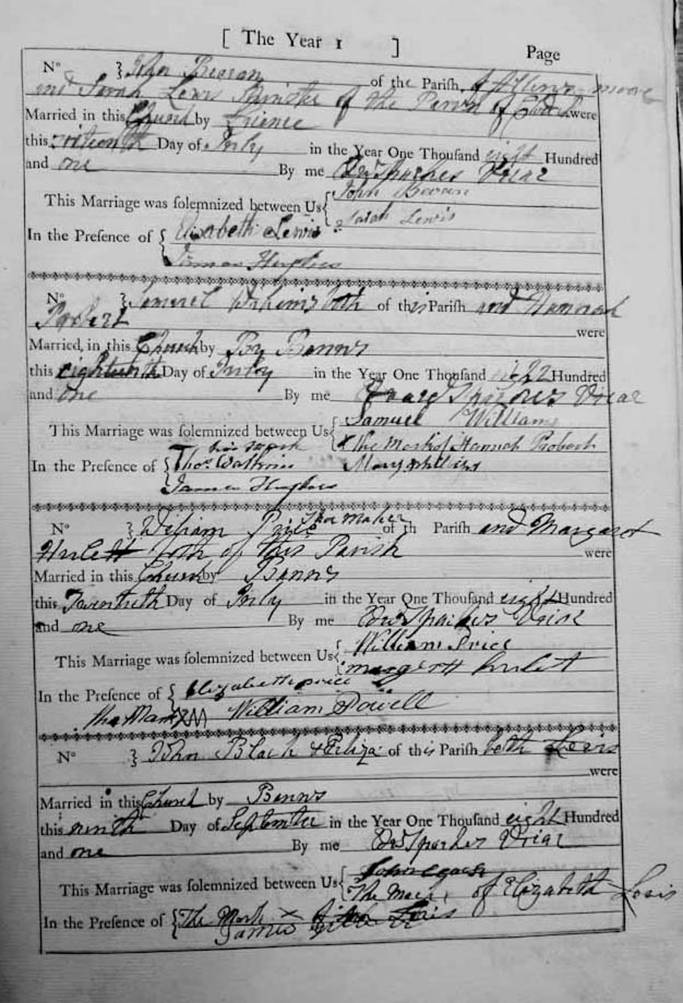 [ The Year 1 ] Page
No } John Beavan of the Parish of
and Sarah Lewis of the of were
Married in this Church by Licence
this Day of July in the Year One Thousand eight Hundred
and one By me Edw Sparkes Vicar
This Marriage was solemnized between Us { John Bevan
Sarah Lewis
In the Presence of { Elizabeth Lewis
James Hughes
No } Samuel Williams both of this Parish and Hannah
were
Married in this Church by By Banns
this eighteenth Day of July in the Year One Thousand Hundred
and one By me Edward Sparkes Vicar
This Marriage was solemnized between Us { Samuel Williams
X the Mark of Hannah Probert
his mark
In the Presence of { Thos Watkins Mary Phillips
James Hughes
No } William Price Shoe Maker of th Parish and Margaret
Hulett both of this Parish were
Married in this Church by Banns
this Twentieth Day of July in the Year One Thousand eight Hundred
and one By me Edw Sparkes Vicar
This Marriage was solemnized between Us { William Price
margett hulet
In the Presence of { Elizabeth price
the Mark William Powell
No } John Black & Eliza of this Parish both Lewis
were
Married in this Church by Banns
this ninth Day of September in the Year One Thousand eight Hundred
and one By me Edw Sparkes Vicar
This Marriage was solemnized between Us {
The Mark of Elizabeth Lewis
In the Presence of { The Mark X of Lewis
James